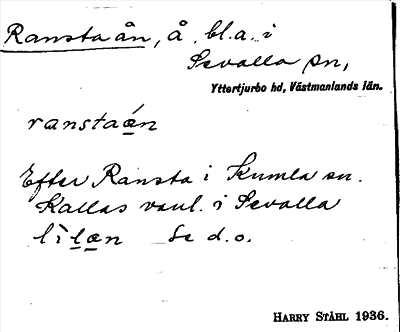 Ranstaån, å bl.a. i
Sevalla sn,
Yttertjurbo hd, Västmanlands län.
ranstaá̱n
Efter Ransta i Kumla sn.
Kallas vanl. i Sevalla
lìlæn Se d.o.
HARRY STÅHL 1936.